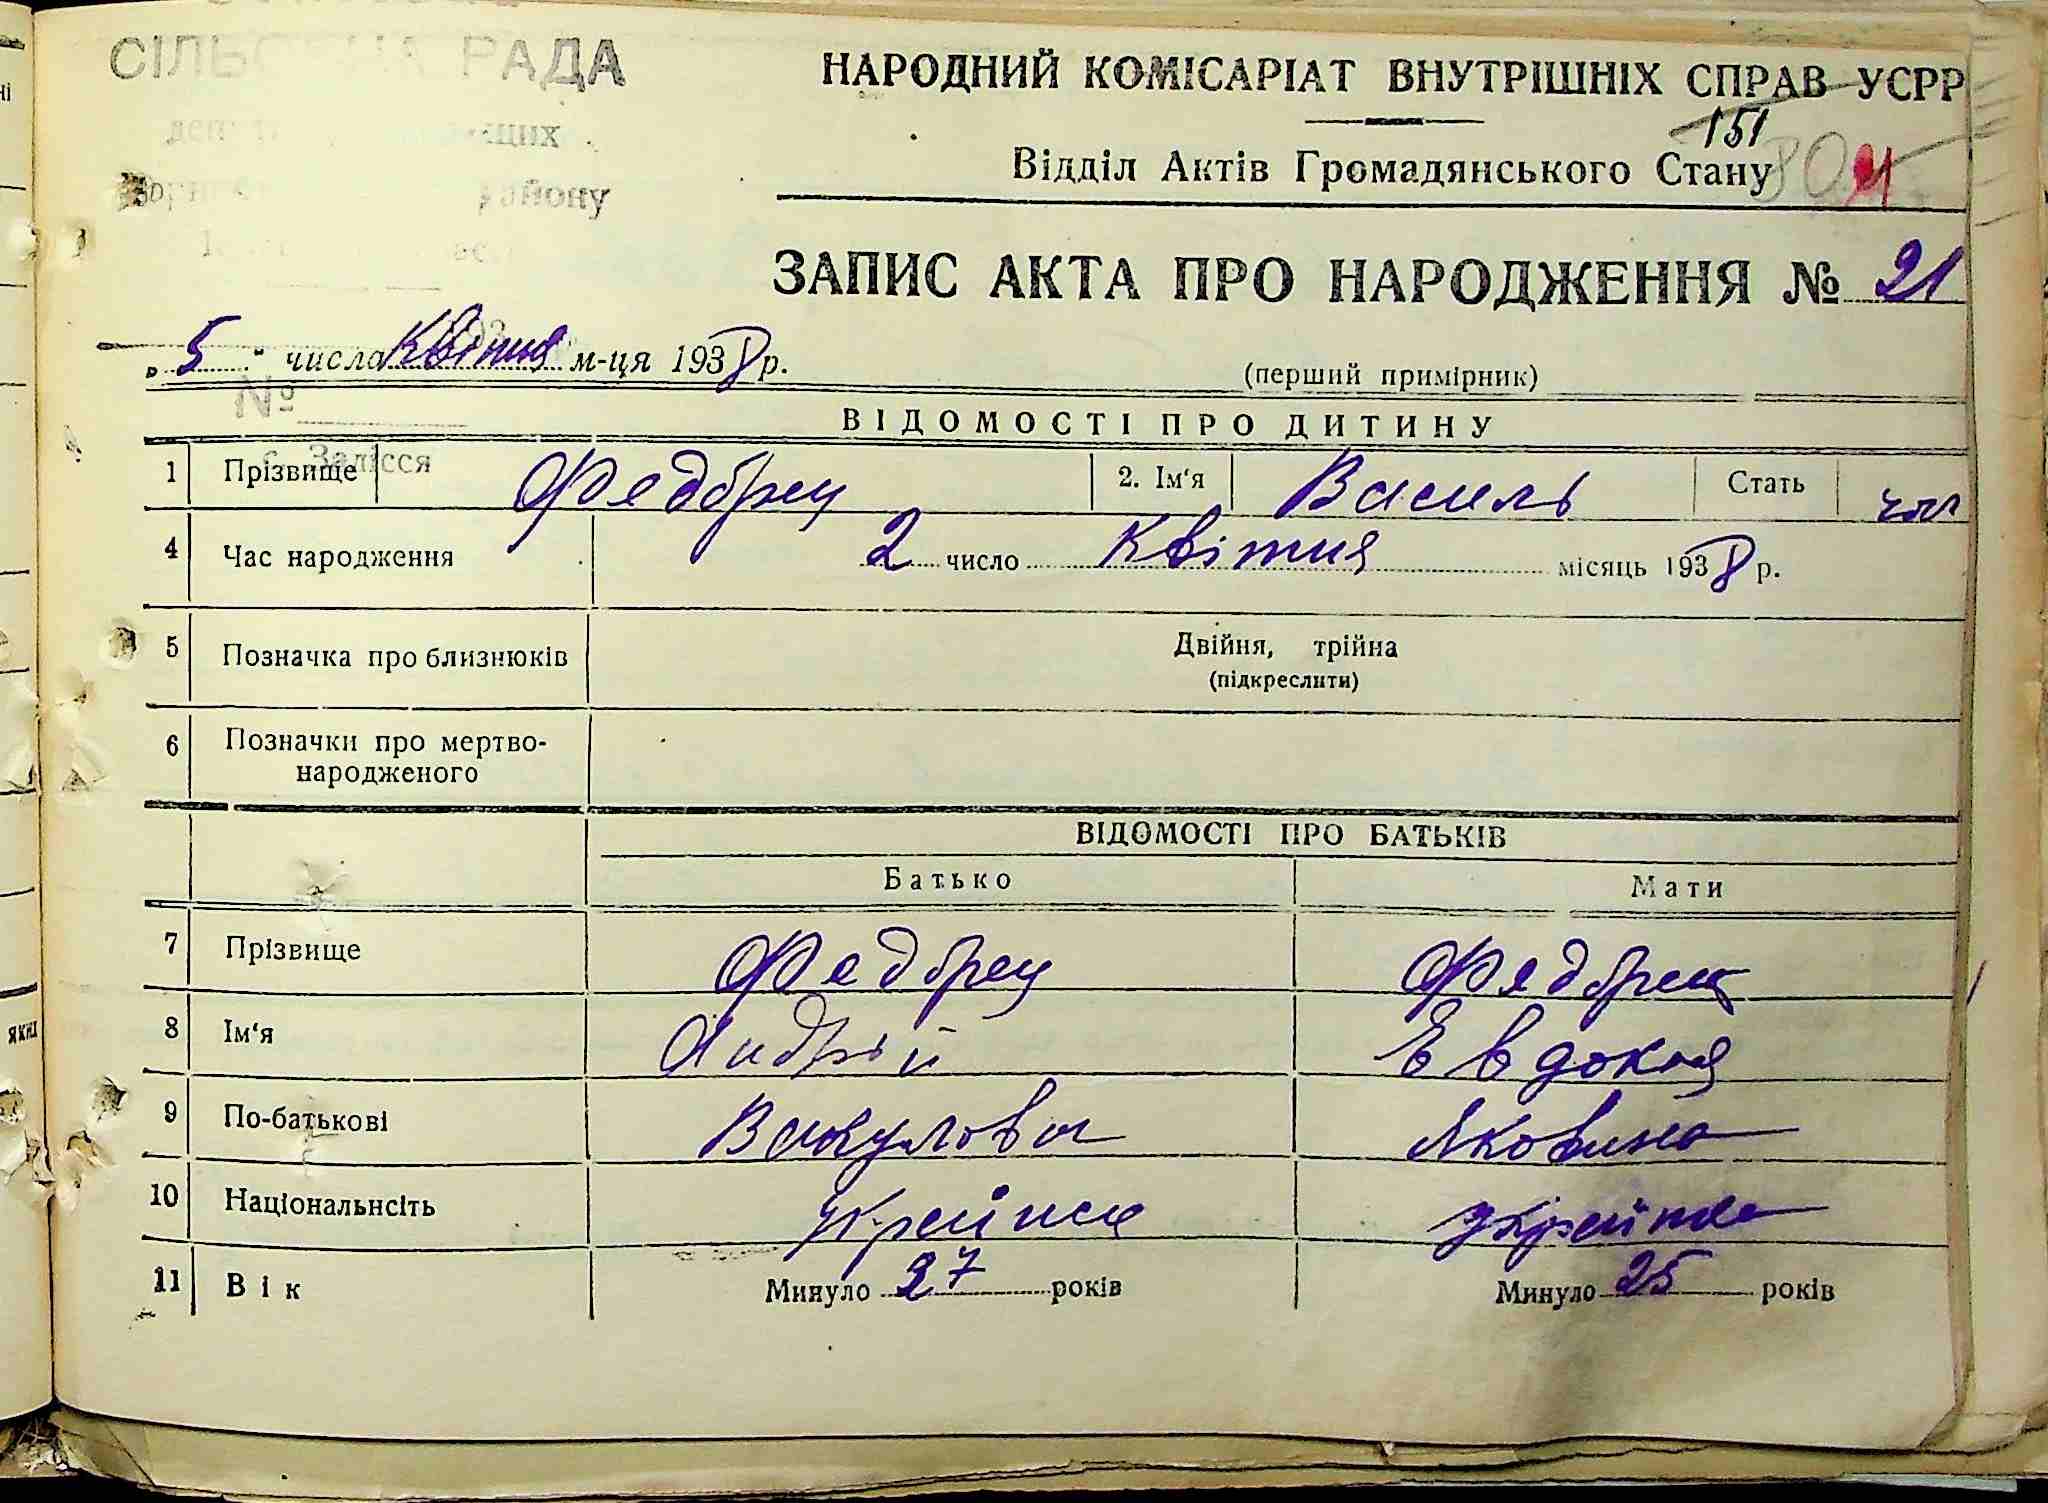 СІЛЬСЬКА РАДА
НАРОДНИЙ КОМІСАРІАТ ВНУТРІШНІХ СПРАВ УСРР
151
Відділ Актів Громадянського Стану
району
ЗАПИС АКТА ПРО НАРОДЖЕННЯ № 21
„5" числа Квітня м-ця 1938 р.
(перший примірник)
№
с. Залісся
ВІДОМОСТІ ПРО ДИТИНУ
1 Прізвище Федорец 2. Ім'я Василь Стать чол
4 Час народження 2 число Квітня місяць 1938 р.
5 Позначка про близнюків Двійня, трійна
(підкреслити)
6 Позначки про мертво-
народженого
ВІДОМОСТІ ПРО БАТЬКІВ
Батько Мати
7 Прізвище Федорец Федорец
8 Ім'я Андрій Евдокия
9 По-батькові Вакулович Яковина
10 Національнсіть
11 Вік Минуло 27 років Минуло 25 років